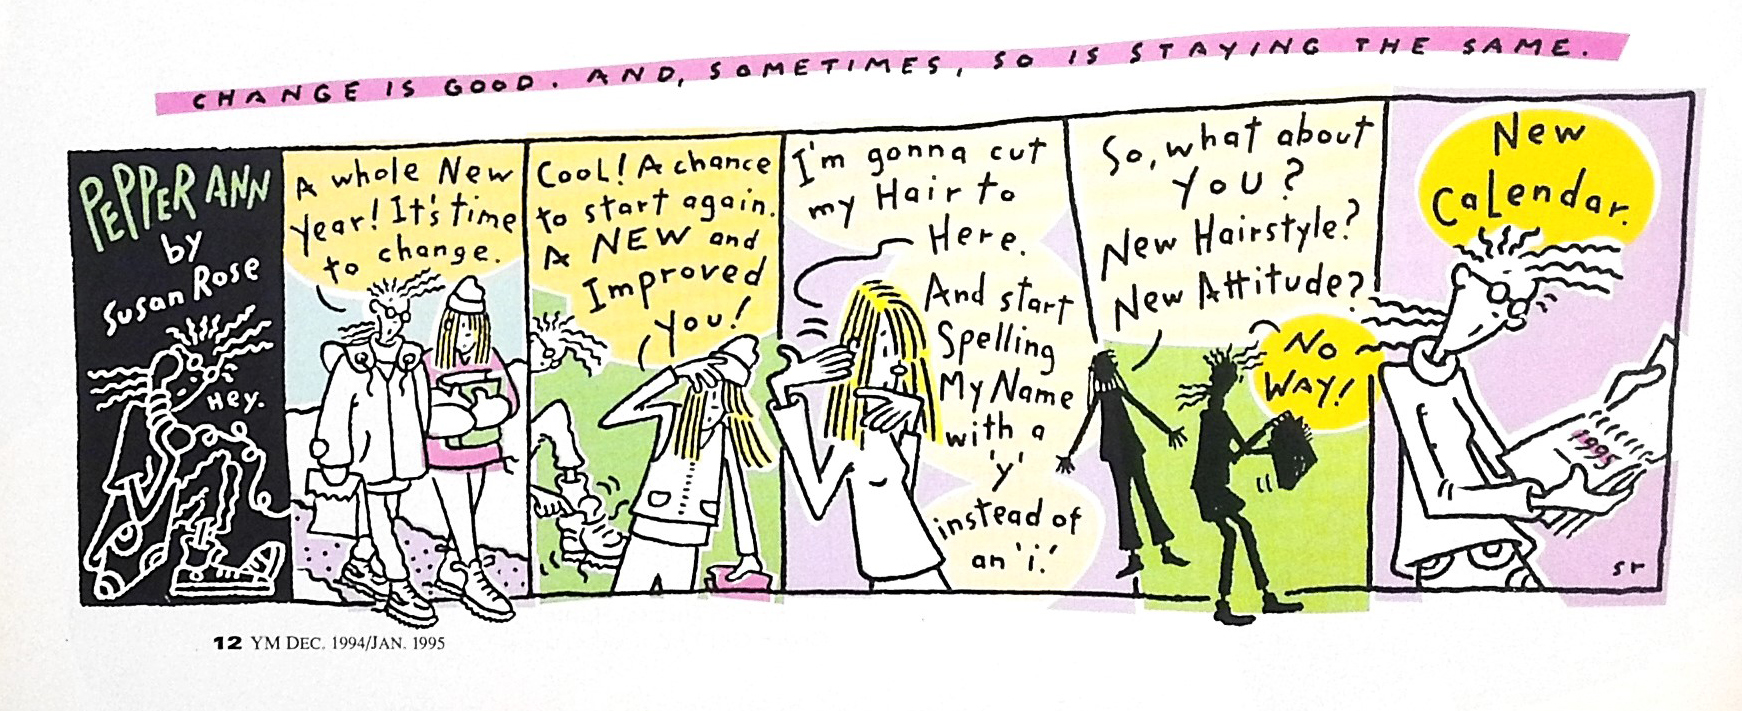 CHANGE IS GOOD. AND, SOMETIMES, SO IS STAYING THE SAME.
PEPPER ANN
by
Susan Rose
Hey.
A whole New
Year! It's time
to change.
Cool! A chance
to start again.
A NEW and
Improved
you!
I'm gonna cut
my Hair to
Here.
And start
Spelling
My Name
with a
'y'
instead of
an 'i'.
So, what about
you?
New Hairstyle?
New Attitude?
No
WAY!
New
Calendar.
1995
sr
12 YM DEC. 1994/JAN. 1995